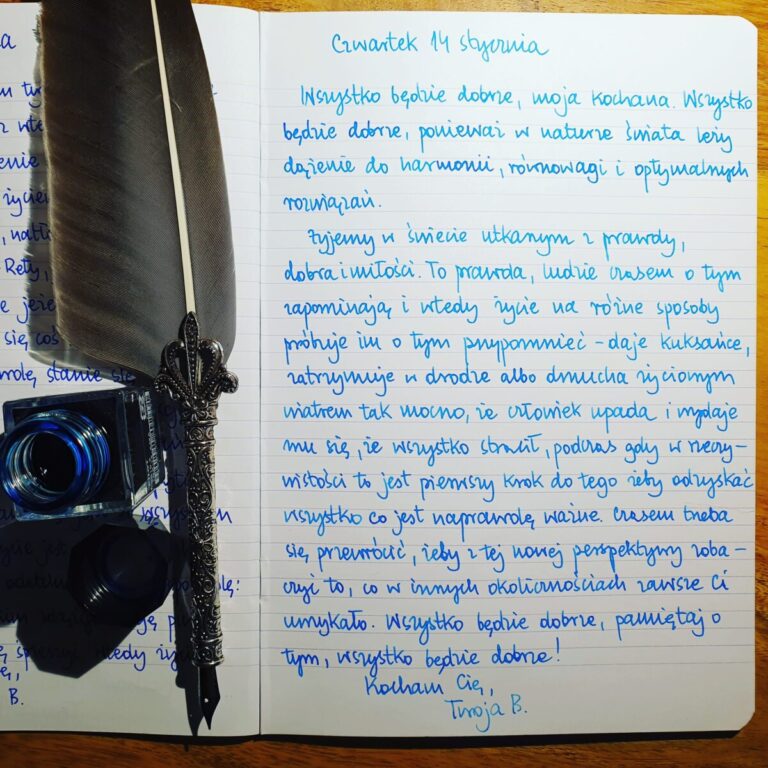 Czwartek 14 stycznia
Wszystko będzie dobrze, moja Kochana. Wszystko
będzie dobrze, ponieważ w naturze świata leży
dążenie do harmonii, równowagi i optymalnych
rozwiązań.
Żyjemy w świecie utkanym z prawdy,
dobra i miłości. To prawda, ludzie czasem o tym
zapominają i wtedy życie na różne sposoby
próbuje im o tym przypomnieć – daje kuksańce,
zatrzymuje w drodze albo dmucha życiowym
wiatrem tak mocno, że człowiek upada i wydaje
mu się, że wszystko stracił, podczas gdy w rzeczy-
wistości to jest pierwszy krok do tego żeby odzyskać
wszystko co jest naprawdę ważne. Czasem trzeba
się przewrócić, żeby z tej nowej perspektywy zoba-
czyć to, co w innych okolicznościach zawsze Ci
umykało. Wszystko będzie dobrze, pamiętaj o
tym, wszystko będzie dobrze!
Kocham Cię,
Twoja B.
a
życiem
się, coś
stanie się
B.